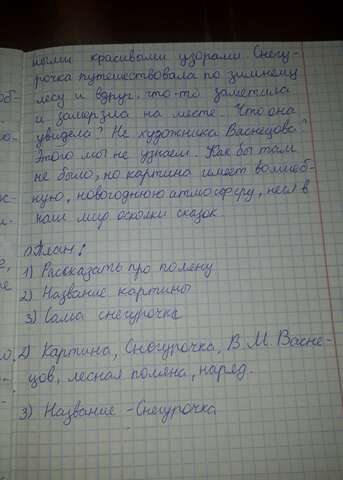 ными красивыми узорами. Снегу-
рочка путешествовала по зимнему
лесу и вдруг что-то заметила
и замерзла на месте. Что она
увидела? Не художника Васнецова?
Этого мы не узнаем. Как бы там
не было, но картина имеет волшеб-
ную, новогоднюю атмосферу, несёт в
наш мир осколки сказок
План:
1) Рассказать про поляну
2) Название картины
3) Сама снегурочка
2) Картина, Снегурочка, В. М. Васне-
цов, лесная поляна, наряд.
3) Название - Снегурочка